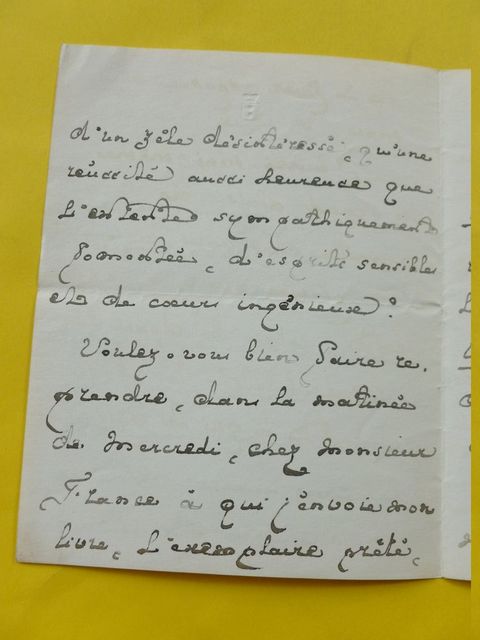 d'un zèle désintéressé, qu'une
réussite aussi heureuse que
l'entente sympathiquement
fomentée, d'esprits sensibles
et de cœurs ingénieux?
Voulez-vous bien faire re-
prendre, dans la matinée
de mercredi, chez Monsieur
France à qui j'envoie mon
livre, l'exemplaire prêté,